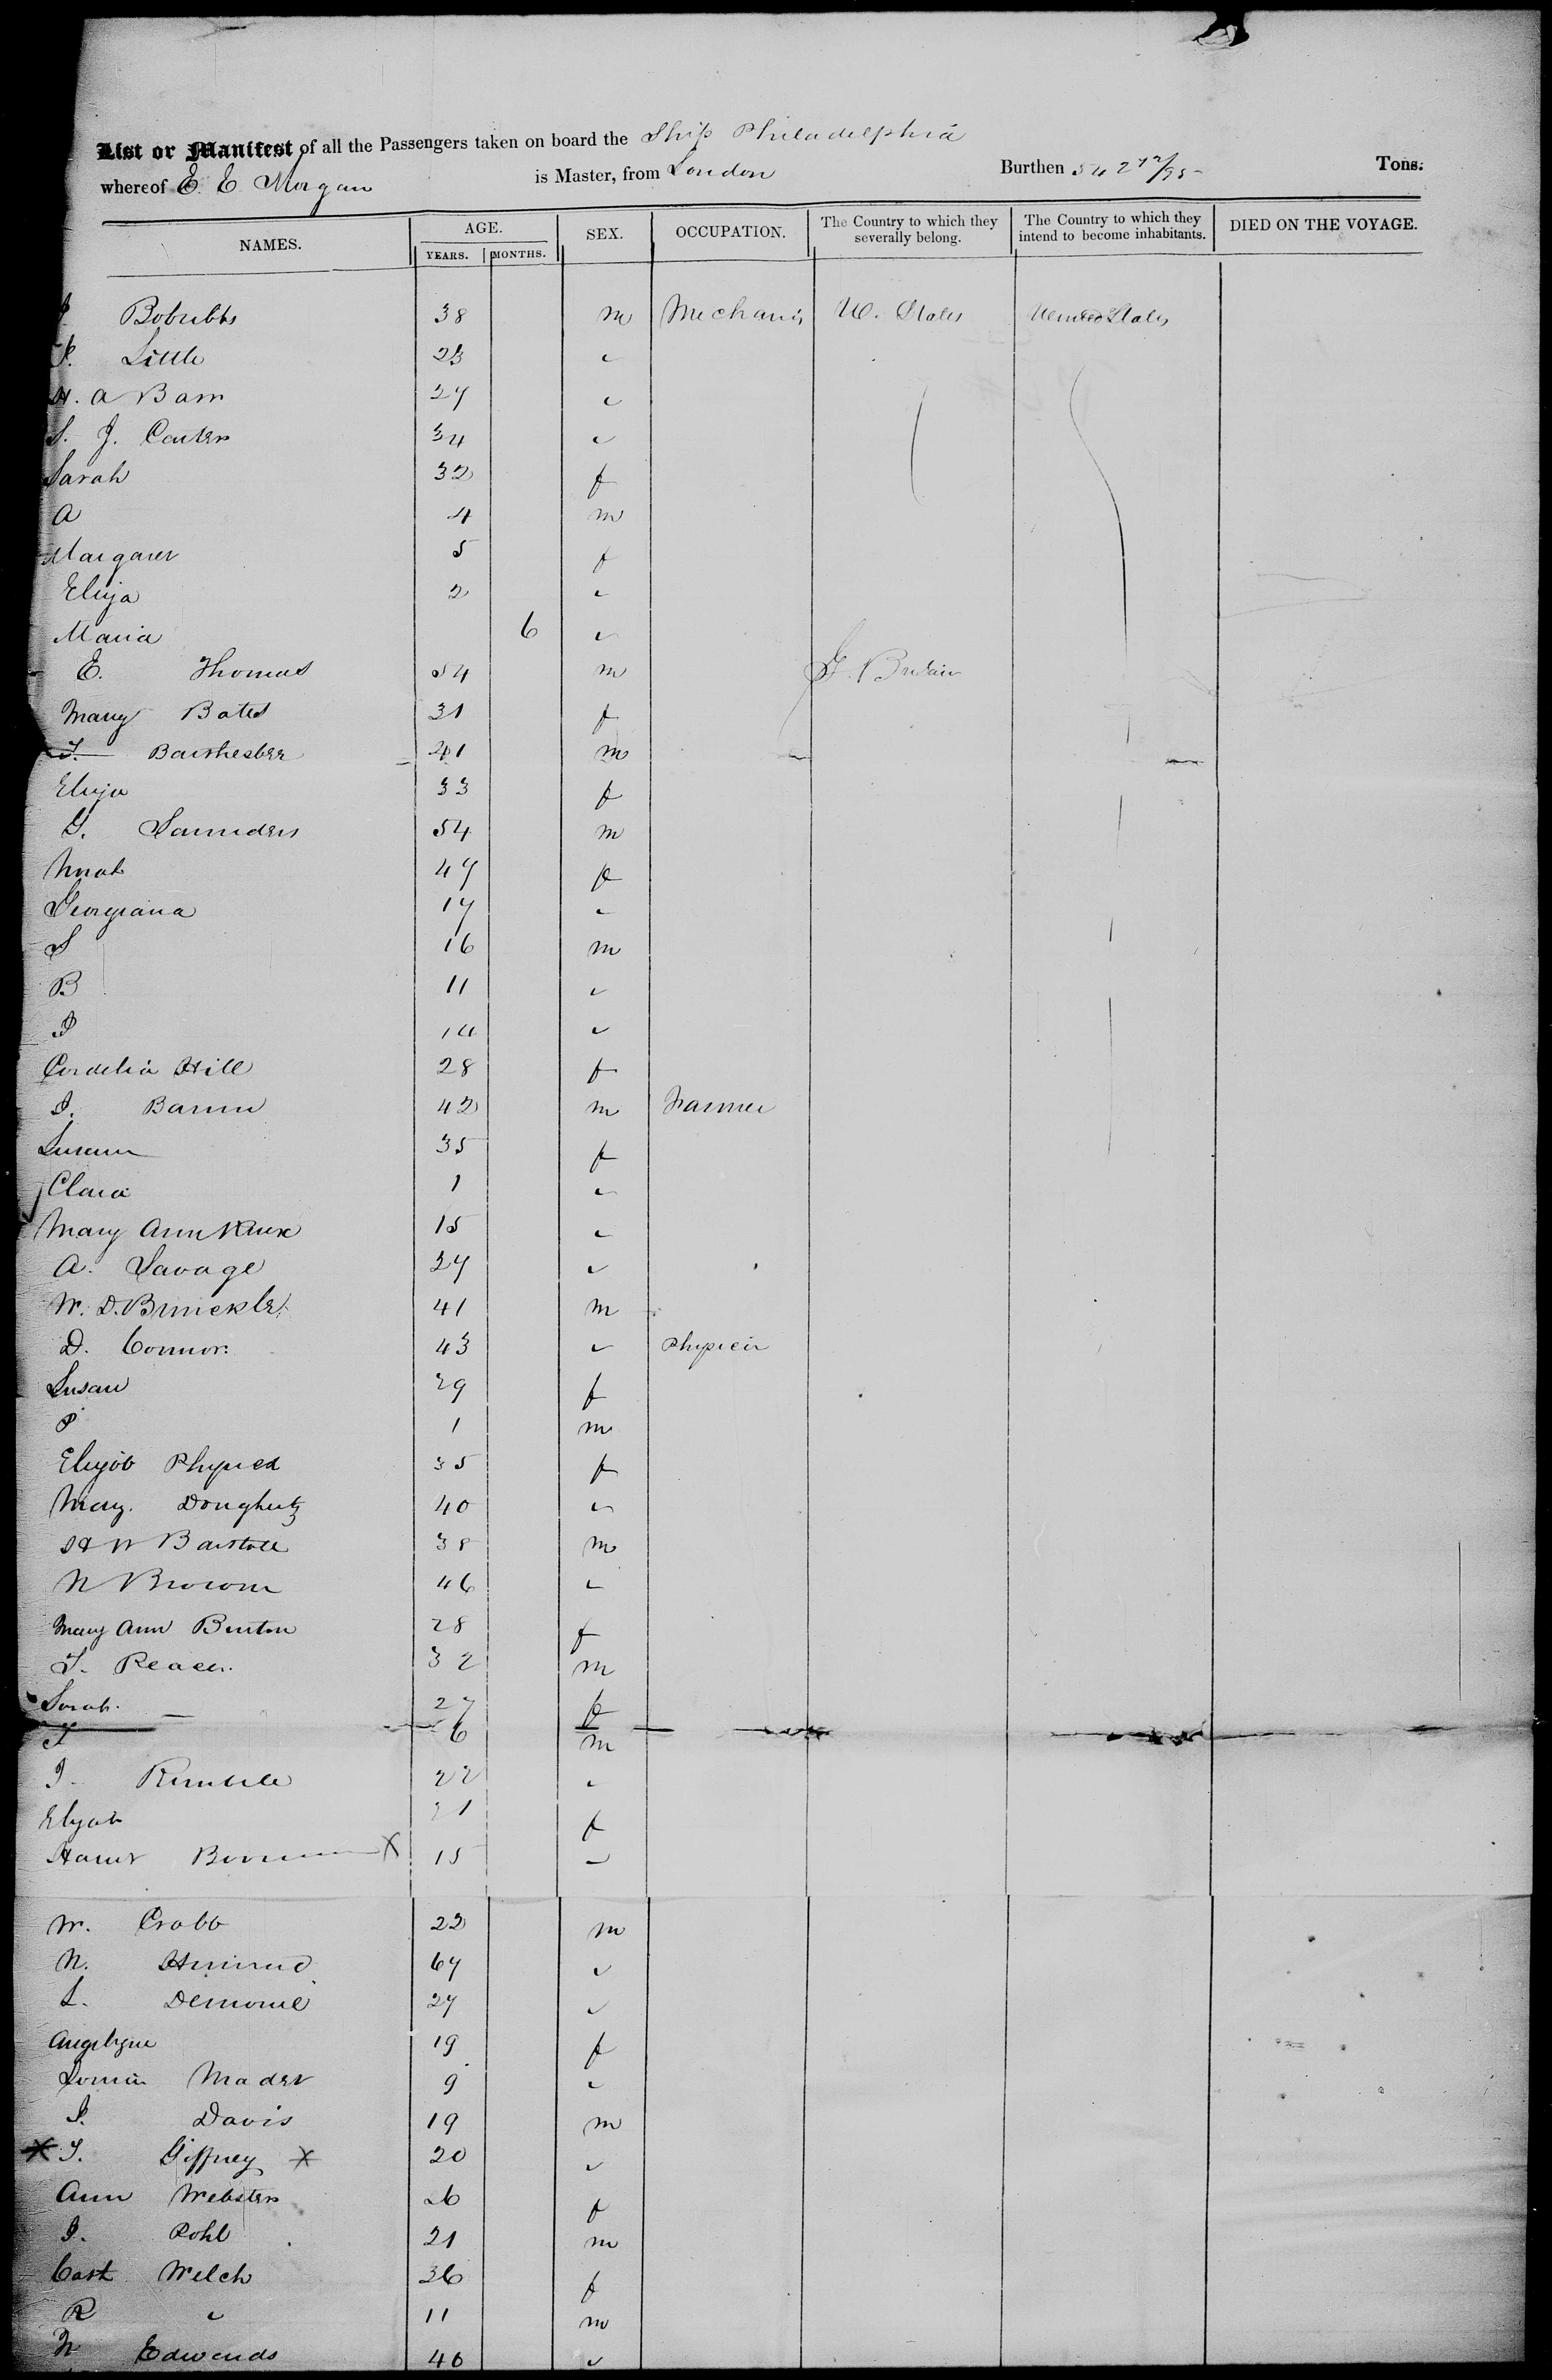 List or Manifest of all the Passengers taken on board the Ship Philadelphia
whereof E. E. Morgan is Master, from London Burthen 542 72/95 Tons.
NAMES. AGE. YEARS. MONTHS. SEX. OCCUPATION. The Country to which they severally belong. The Country to which they intend to become inhabitants. DIED ON THE VOYAGE.
38 m Mechanic U. States United States
Little 23 "
H. A Barn 27 "
S. J. Carter 34 "
Sarah 32 f
A 4 m
Margaret 5 f
Eliza 2 "
Maria 6 "
E. Thomas 54 m G. Britain
Mary Bates 31 f
41 m
Eliza 33 f
G. Saunders 54 m
47 f
Georgiana 17 "
S 16 m
B 11 "
J 14 "
Cordelia Hill 28 f
J. 42 m Farmer
Susann 35 f
Clara 1 "
Mary Ann 15 "
A. Savage 27 "
W. D. Brinckle 41 m
D. Connor. 43 " Physicia
Susan 29 f
P 1 m
Elizab 35 f
Mary. Dougherty 40 "
38 m
N Brown 46 "
Mary Ann Burton 28 f
T. 32 m
Sarah. 27 f
T 6 m
J. Rumble 22 "
Elizab 21 f
X 15 "
W. Crabb 22 m
N. 67 "
L. 27 "
Angelique 19 f
Mader 9 "
J. Davis 19 m
X T. X 20 "
Ann Webster 26 f
J. Pohl 21 m
Cath Welch 36 f
R " 11 m
N Edwards 46 "